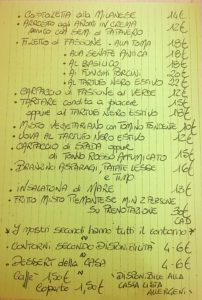 • COSTOLETTA alla MILANESE 14€
• ARROSTO agli AROMI IN CREMA 12€
MANZO CON SEMI di PAPAVERO
• FILETTO di FASSONE - ALLA TOMA 18€
- ALLA SENAPE ANTICA 18€
- AL BASILICO 18€
- AI FUNGHI PORCINI 20€
- AL TARTUFO NERO ESTIVO 22€
• CARPACCIO di FASSONE al VERDE 12€
• TARTARE condita a piacere 15€
oppure al TARTUFO NERO ESTIVO 18€
• MISTO VEGETARIANO con TOMINO FONDENTE 10€
• UOVA AL TARTUFO NERO ESTIVO 12€
• CARPACCIO di SPADA oppure
di TONNO ROSSO AFFUMICATO 15€
• BRANZINO ASPARAGI, PATATE LESSE 16€
e TIMO
• INSALATONA di MARE 13€
• FRITTO MISTO PIEMONTESE MIN 2 PERSONE
SU PRENOTAZIONE 30€
CAD
* I nostri secondi hanno tutti il contorno *
• CONTORNI SECONDO DISPONIBILITÀ 4-6€
• DESSERT della CASA 4-6€
Caffè 1,50€ * DISPONIBILE ALLA
Coperto 1,50€ CASSA LISTA
ALLERGENI